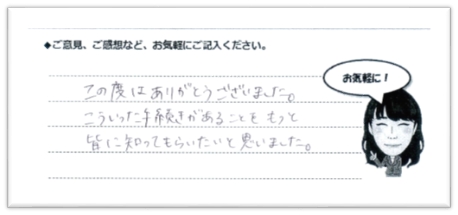 ◆ご意見、ご感想など、お気軽にご記入ください。
お気軽に！
この度はありがとうございました。
こういった手続きがあることをもっと
皆に知ってもらいたいと思いました。